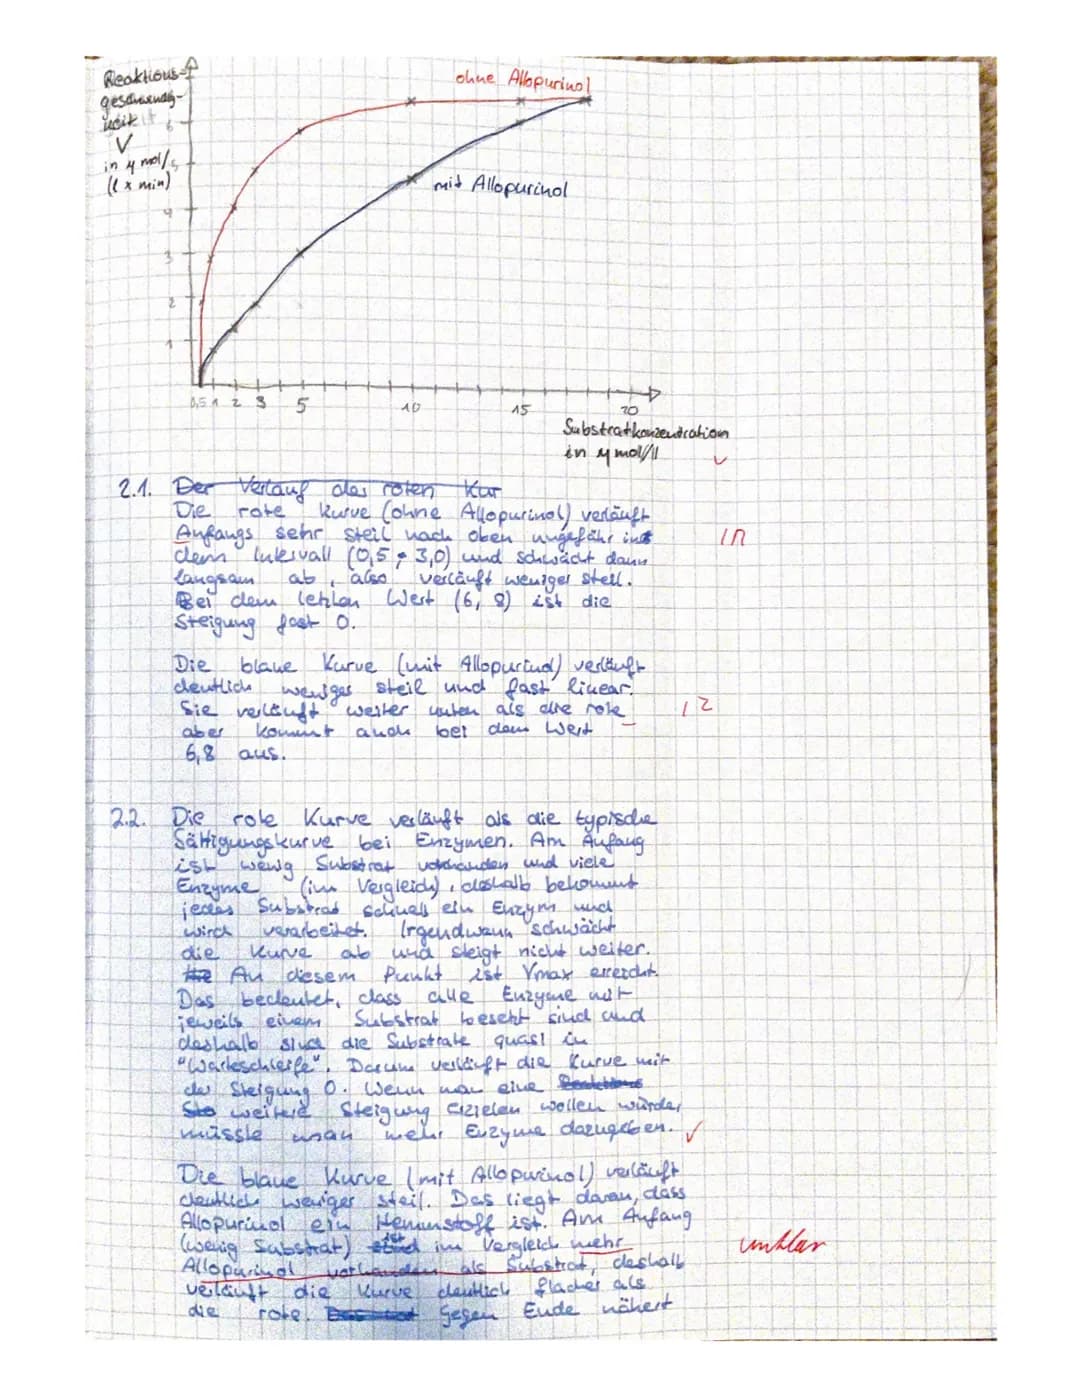 Reaktions-
geschwindig-
keit
V
in µmol/
(l x min)
ohne Allopurinol
mit Allopurinol
6
5
4
3
2
1
0,5 1 2 3 5 10 15 20
Substratkonzentration
in µmol/l
2.1. Der Verlauf des roten Kur
Die rote Kurve (ohne Allopurinol) verläuft
Anfangs sehr steil nach oben ungefähr in
dem Intervall (0,5 ; 3,0) und schwächt dann
langsam ab, also verläuft weniger steil.
Bei dem letzten Wert (6,8) ist die
Steigung fast 0.
Die blaue Kurve (mit Allopurinol) verläuft
deutlich weniger steil und fast linear.
Sie verläuft weiter unten als die rote
aber kommt auch bei dem Wert
6,8 aus.
2.2. Die rote Kurve verläuft als die typische
Sättigungskurve bei Enzymen. Am Anfang
ist wenig Substrat vorhanden und viele
Enzyme (im Vergleich), deshalb bekommt
jedes Substrat schnell ein Enzym und
wird verarbeitet. Irgendwann schwächt
die Kurve ab und steigt nicht weiter.
An diesem Punkt ist Vmax erreicht.
Das bedeutet, dass alle Enzyme mit
jeweils einem Substrat besetzt sind und
deshalb sind die Substrate quasi in
"Warteschleife". Darum verläuft die Kurve mit
der Steigung 0. Wenn man eine
weitere Steigung erzielen wollen würde,
müsste man mehr Enzyme dazugeben.
Die blaue Kurve (mit Allopurinol) verläuft
deutlich weniger steil. Das liegt daran, dass
Allopurinol ein Hemmstoff ist. Am Anfang
(wenig Substrat) ist im Vergleich mehr
Allopurinol vorhanden als Substrat, deshalb
verläuft die Kurve deutlich flacher als
die rote. Gegen Ende nähert
unklar